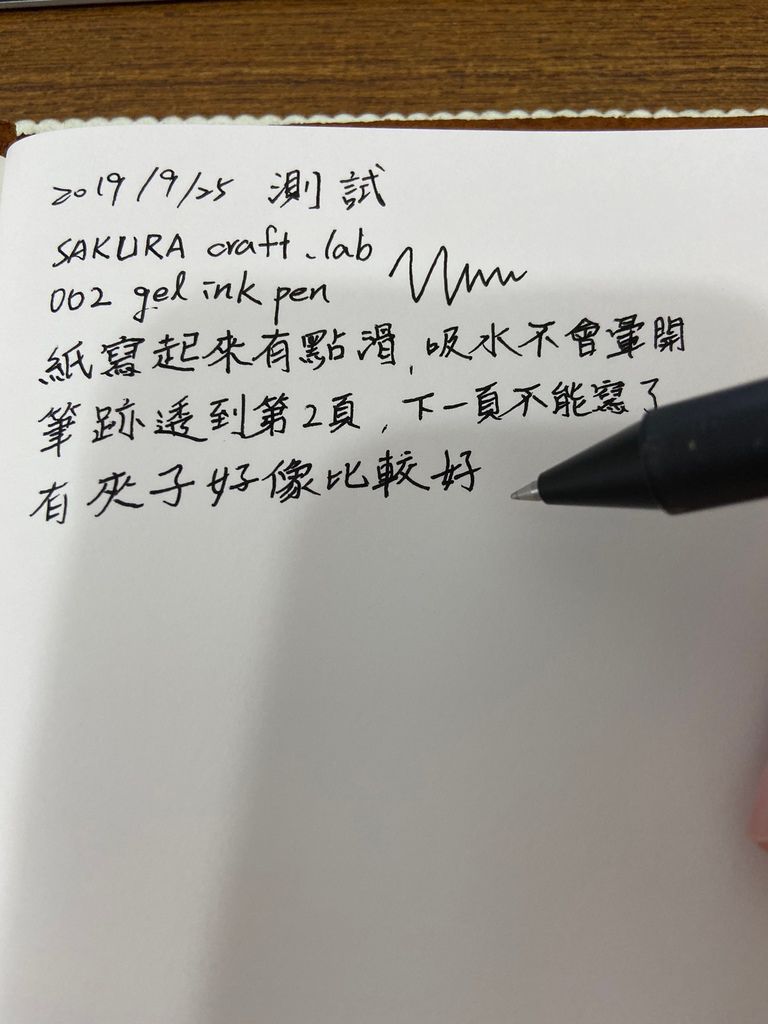 2019/9/25 測試
SAKURA craft.lab
002 gel ink pen
紙寫起來有點滑,吸水不會暈開
筆跡透到第2頁,下一頁不能寫了
有夾子好像比較好